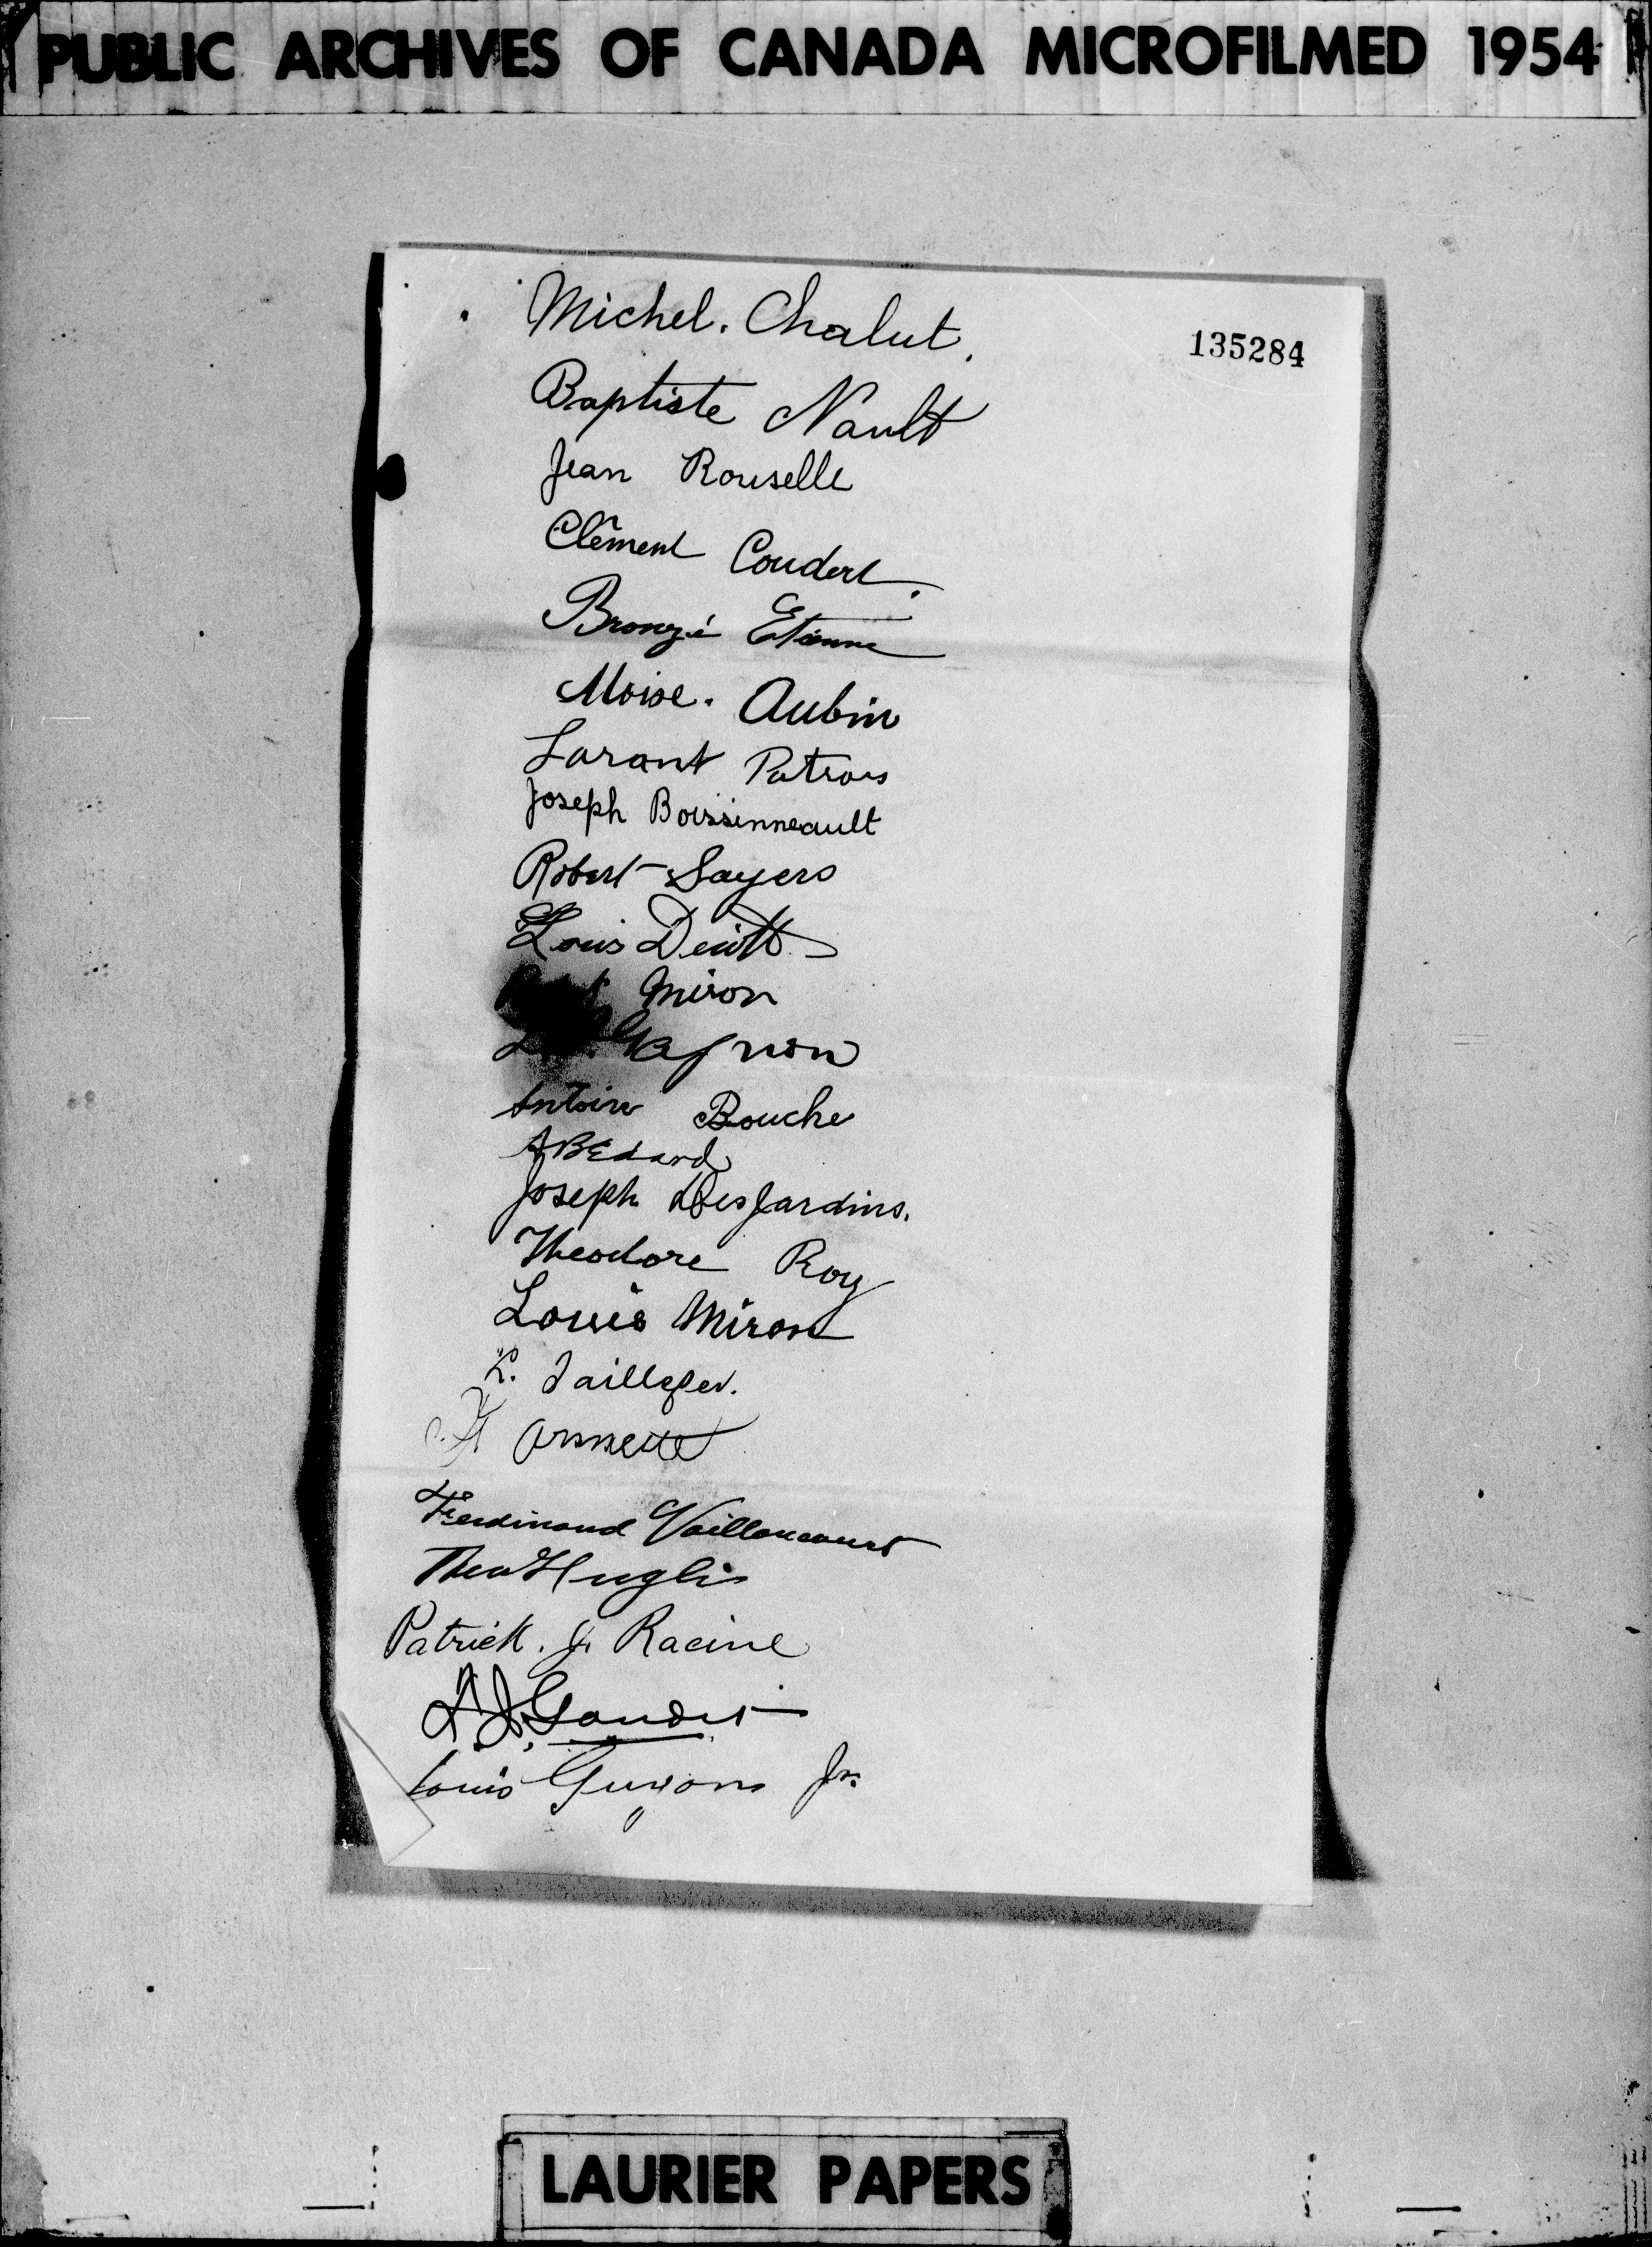 PUBLIC ARCHIVES OF CANADA MICROFILMED 1954
135284
Michel. Chalut.
Baptiste Nault
Jean Rouselle
Clément Coudert.
Bronzé Etienne
Moise. Aubin
Larant Patrois
Joseph Boissinneault
Robert Sayers
Louis
Miron
Gagnon
Antoine Bouche
A Bedard
Joseph DesJardins.
Theodore Roy
Louis Miron
L. Taillefer.
Ferdinand Vaillancourt
Patrick. J. Racine
Louis Guyon Jr.
LAURIER PAPERS